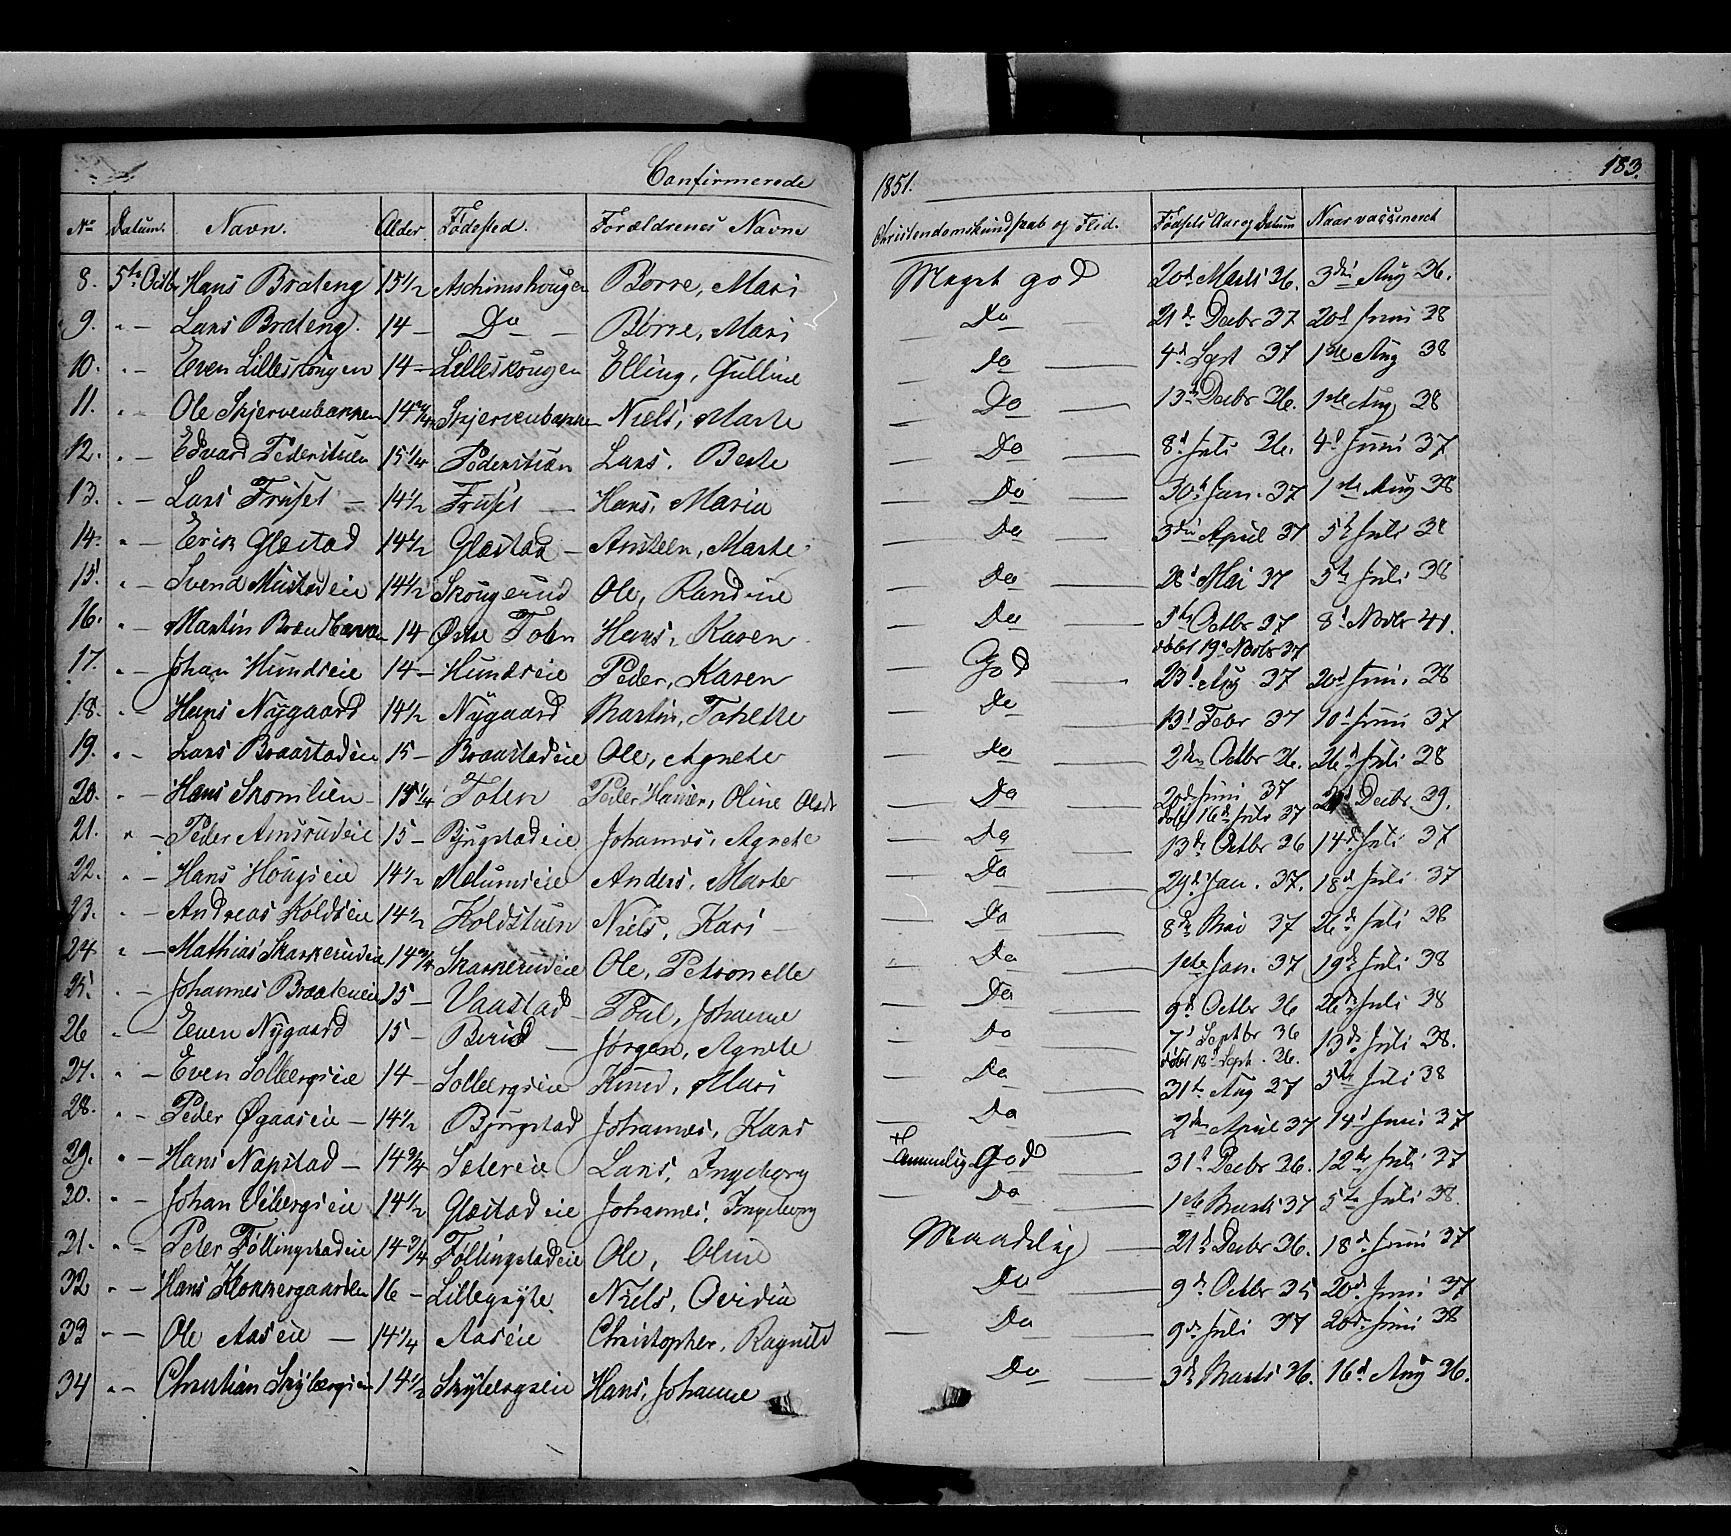 Confirmerede
1851.
183.
No Datum. Navn. Alder. Fødested. Forældrenes Navne Christendomskundskab og Flid. Fødsels Aar og Datum Naar vaccineret
8. 5te Octbr Hans Brateng 15 1/2 Aschimshougen Børre, Mari Meget god 20d Marts 36. 3die Aug 36.
9. " — Lars Brateng. 14 — Do — Børre, Mari — Do — 21de Decbr 37 20d Juni 38
10. " — Even Lilleskougen 14 — Lilleskougen Elling, Gulline — Do — 4d Sept 37 1ste Aug 38
11. " — Ole Skjervenbakken 14 3/4 Skjervenbakken Niels, Marte — Do — 13de Decbr 36. 1ste Aug 38
12. " — Edvard Pederstuen 15 1/4 Pederstuen Lars, Berte — Do — 8d Juli 36. 4d Juni 37
13. " — Lars Fruset — 14 1/2 Fruset — Hans, Maria — Do — 30d Jan. 37 1ste Aug 38
14. " — Erik Glæstad 14 1/2 Glæstad — Ansteen, Marte — Do — 3die April 37 5te Juli 38
15. " — Svend Mustadeie 14 1/2 Skougerud Ole, Randine — Do — 28d Mai 37 5te Juli 38
16. " — Martin Brændbakken 14 Østre Toten Hans, Karen — Do — 5te Octbr 37 8d Novbr 41.
døbt 19de Novbr 37
17. " — Johan Hundseie 14 — Hundseie Peder, Karen — God — 23d Aug 37 20d Juni 38
18. " — Hans Nÿgaard 14 1/2 Nÿgaard Martin, Tohette — Do — 13d Febr 37 10d Juni 37
19. " — Lars Braastadeie 15 — Braastadeie Ole, Agnete — Do — 2den Octbr 36. 26d Juli 38
20. " — Hans Skomlien 15 1/4 Toten Peder Hansen, Oline Olsdr — Do — 20d Juni 37 2d Decbr. 39.
døbt 16d Juli 37
21. " — Peder Amsrudeie 15 — Bjugstadeie Johannes, Agnete — Do — 13de Octbr 36 14d Juli 37
22. " — Hans Hougseie 14 1/2 Melumseie Anders, Marte — Do — 29d Jan. 37. 18d Juli 37
23. " — Andreas Koldseie 14 1/2 Koldstuen Niels, Kari — Do — 8de Mai 37 26de Juli 38
24. " — Mathias Skakkerudeie 14 3/4 Skakkerudeie Ole, Petronelle — Do — 1ste Jan. 37 19de Juli 38
25. " — Johannes 15 — Vaastad — Poul, Johanne — Do — 9d Octbr 36 26de Juli 38
26 " — Even Nÿgaard 15 — Berid — Jørgen, Agnete — Do — 7d Septbr 36 13de Juli 38.
døbt 18d Sept. 36.
27. " — Even Solbergseie 14 — Solbergseie Knud, Mari — Do — 31te Aug 37 5te Juli 38
28. " — Peder Øgaaseie — 14 1/2 Bjugstad Johannes, Kari — Do — 2den April 37 14d Juni 37
29. " — Hans Napstad — 14 3/4 Setereie Lars, Ingeborg Temmelig God — 31d Decbr 36. 12te Juli 37
30. " — Johan Vibergseie 14 1/2 Glæstadeie Johannes, Ingeborg — Do — 1ste Marts 37 5te Juli 38
31. " — Peter Føllingstadeie 14 3/4 Føllingstadeie Ole, Oline Maadelig — 21d Decbr 36. 18d Juni 37
32 " — Hans Klokkergaarden 16 — Niels, Ovidia — Do — 9d Octbr 35 20d Juni 37
33 " — Ole Aaseie — 14 1/4 Aaseie Christopher, Ragnild — Do — 9d Juli 37 20d Juni 38
34 " — Christian Skÿbergseie 14 1/2 Skÿbergseie Hans, Johanne — Do — 3d Marts 36. 16d Aug 36.